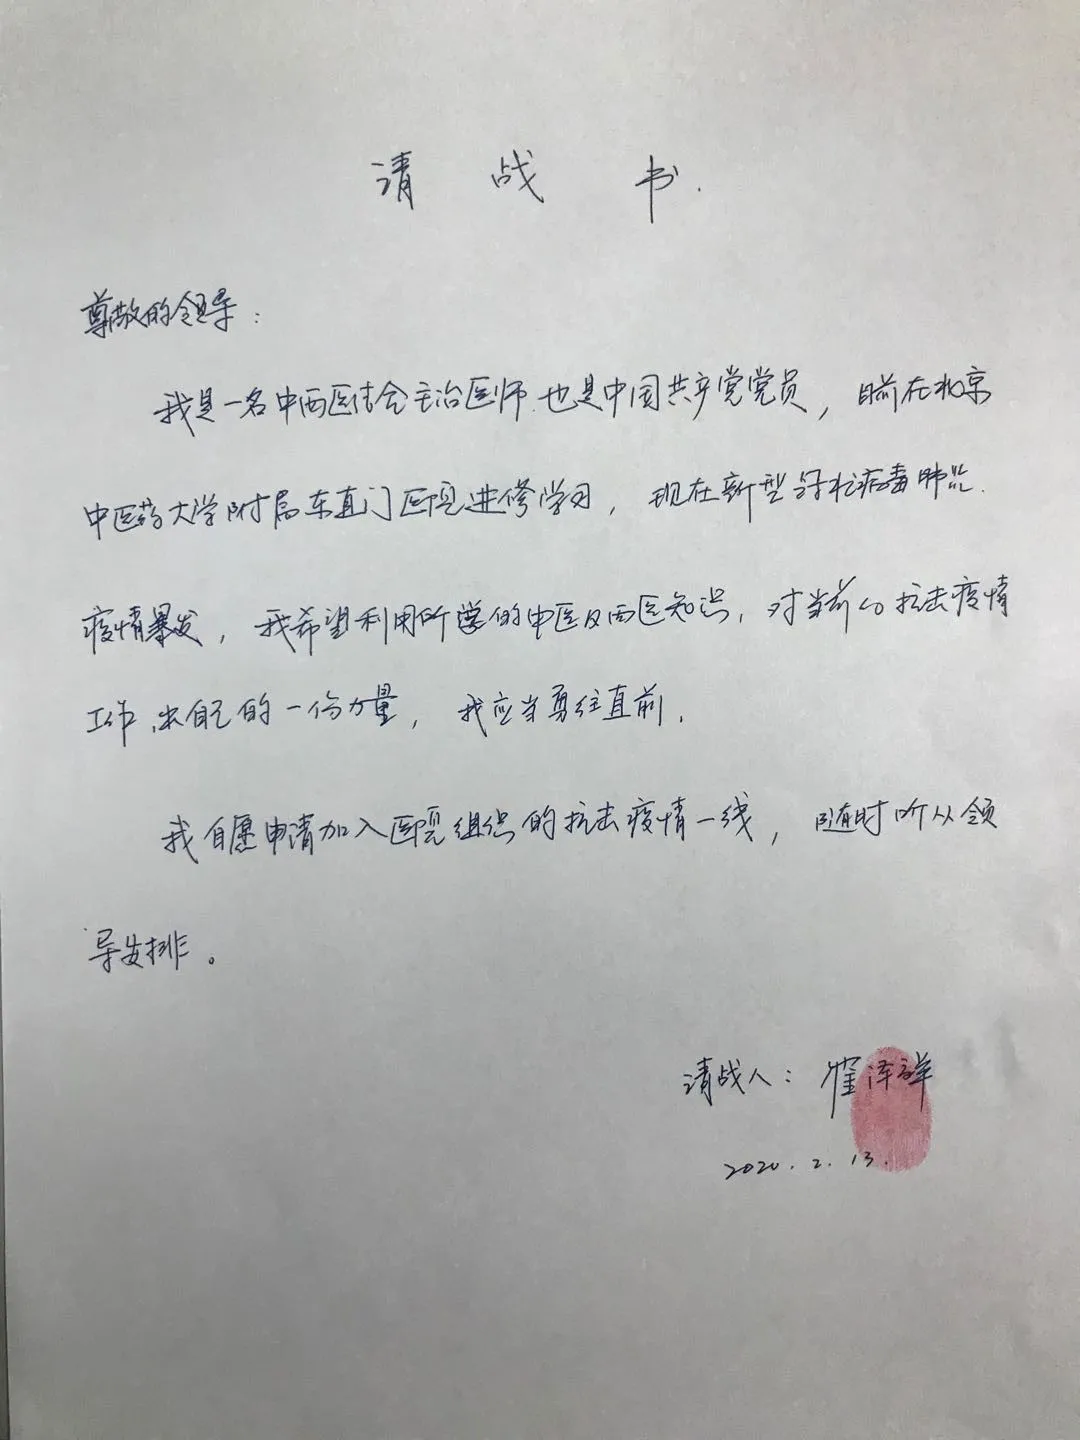 请战书.
尊敬的领导：
我是一名中西医结合主治医师.也是中国共产党党员，目前在北京
中医药大学附属东直门医院进修学习，现在新型冠状病毒肺炎.
疫情暴发，我希望利用所学的中医及西医知识，对当前的抗击疫情
工作.出自己的一份力量，我应当勇往直前.
我自愿申请加入医院组织的抗击疫情一线，随时听从领
导安排。
请战人：崔泽祥
2020.2.13.